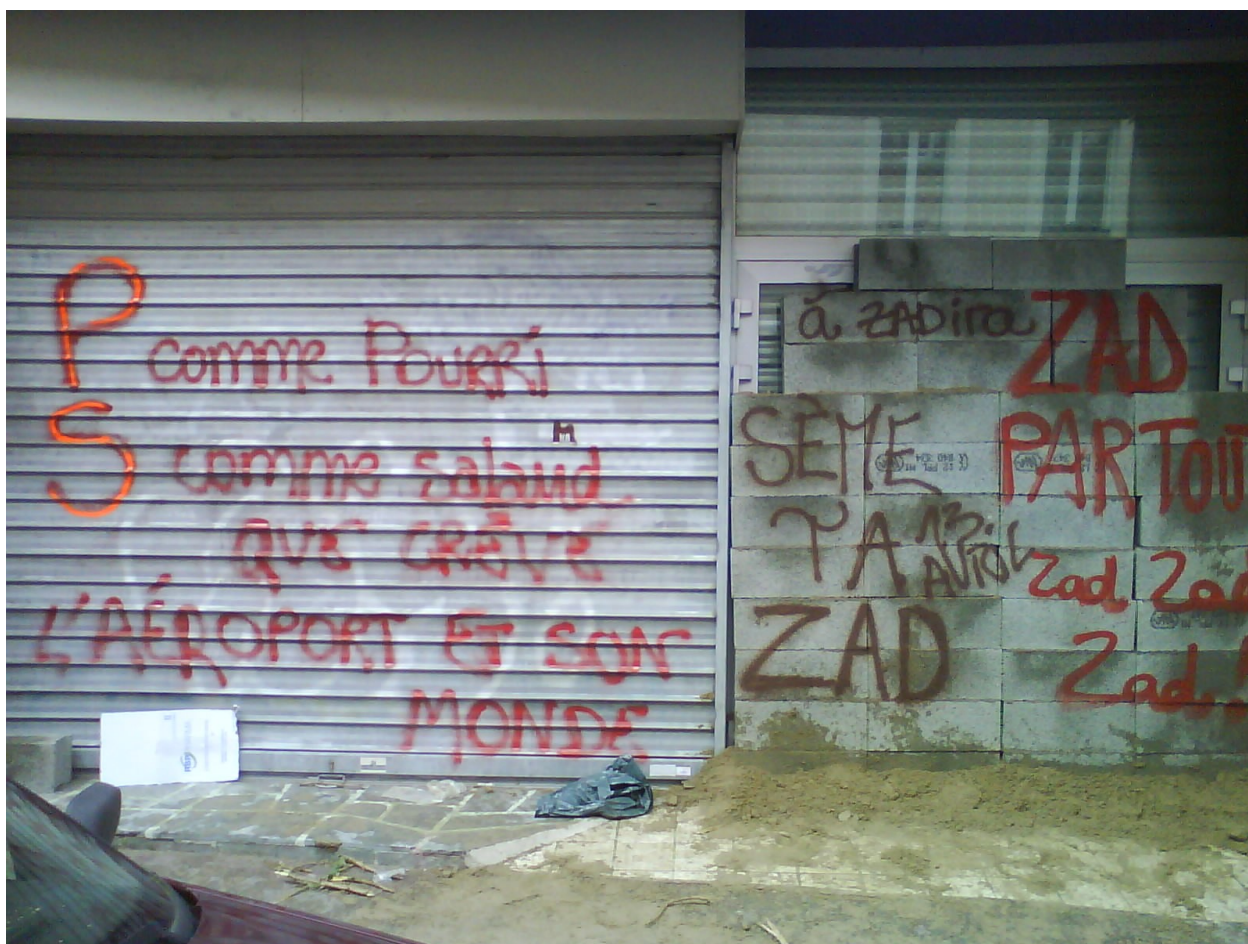 P comme Pourri
S comme salaud
QUE CRÈVE
L'AÉROPORT ET SON
MONDE
à ZADira
ZAD
SÈME
PARTOUT
TA
ZAD
Zad Zad
Zad